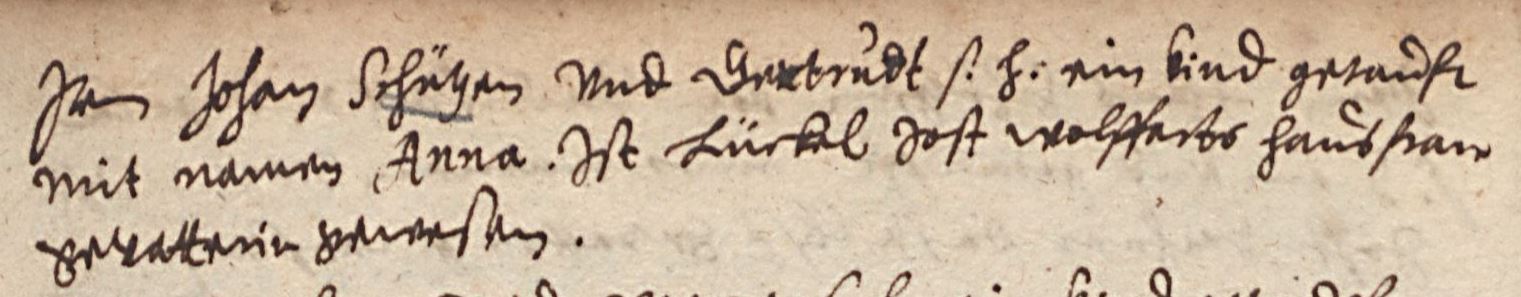 Item Johan Schützen Und Gertrudt s. h. ein kind getaufft
mit namen Anna. Ist Lückel Jost Wolfferts haussfraw
gevatterin gewesen.